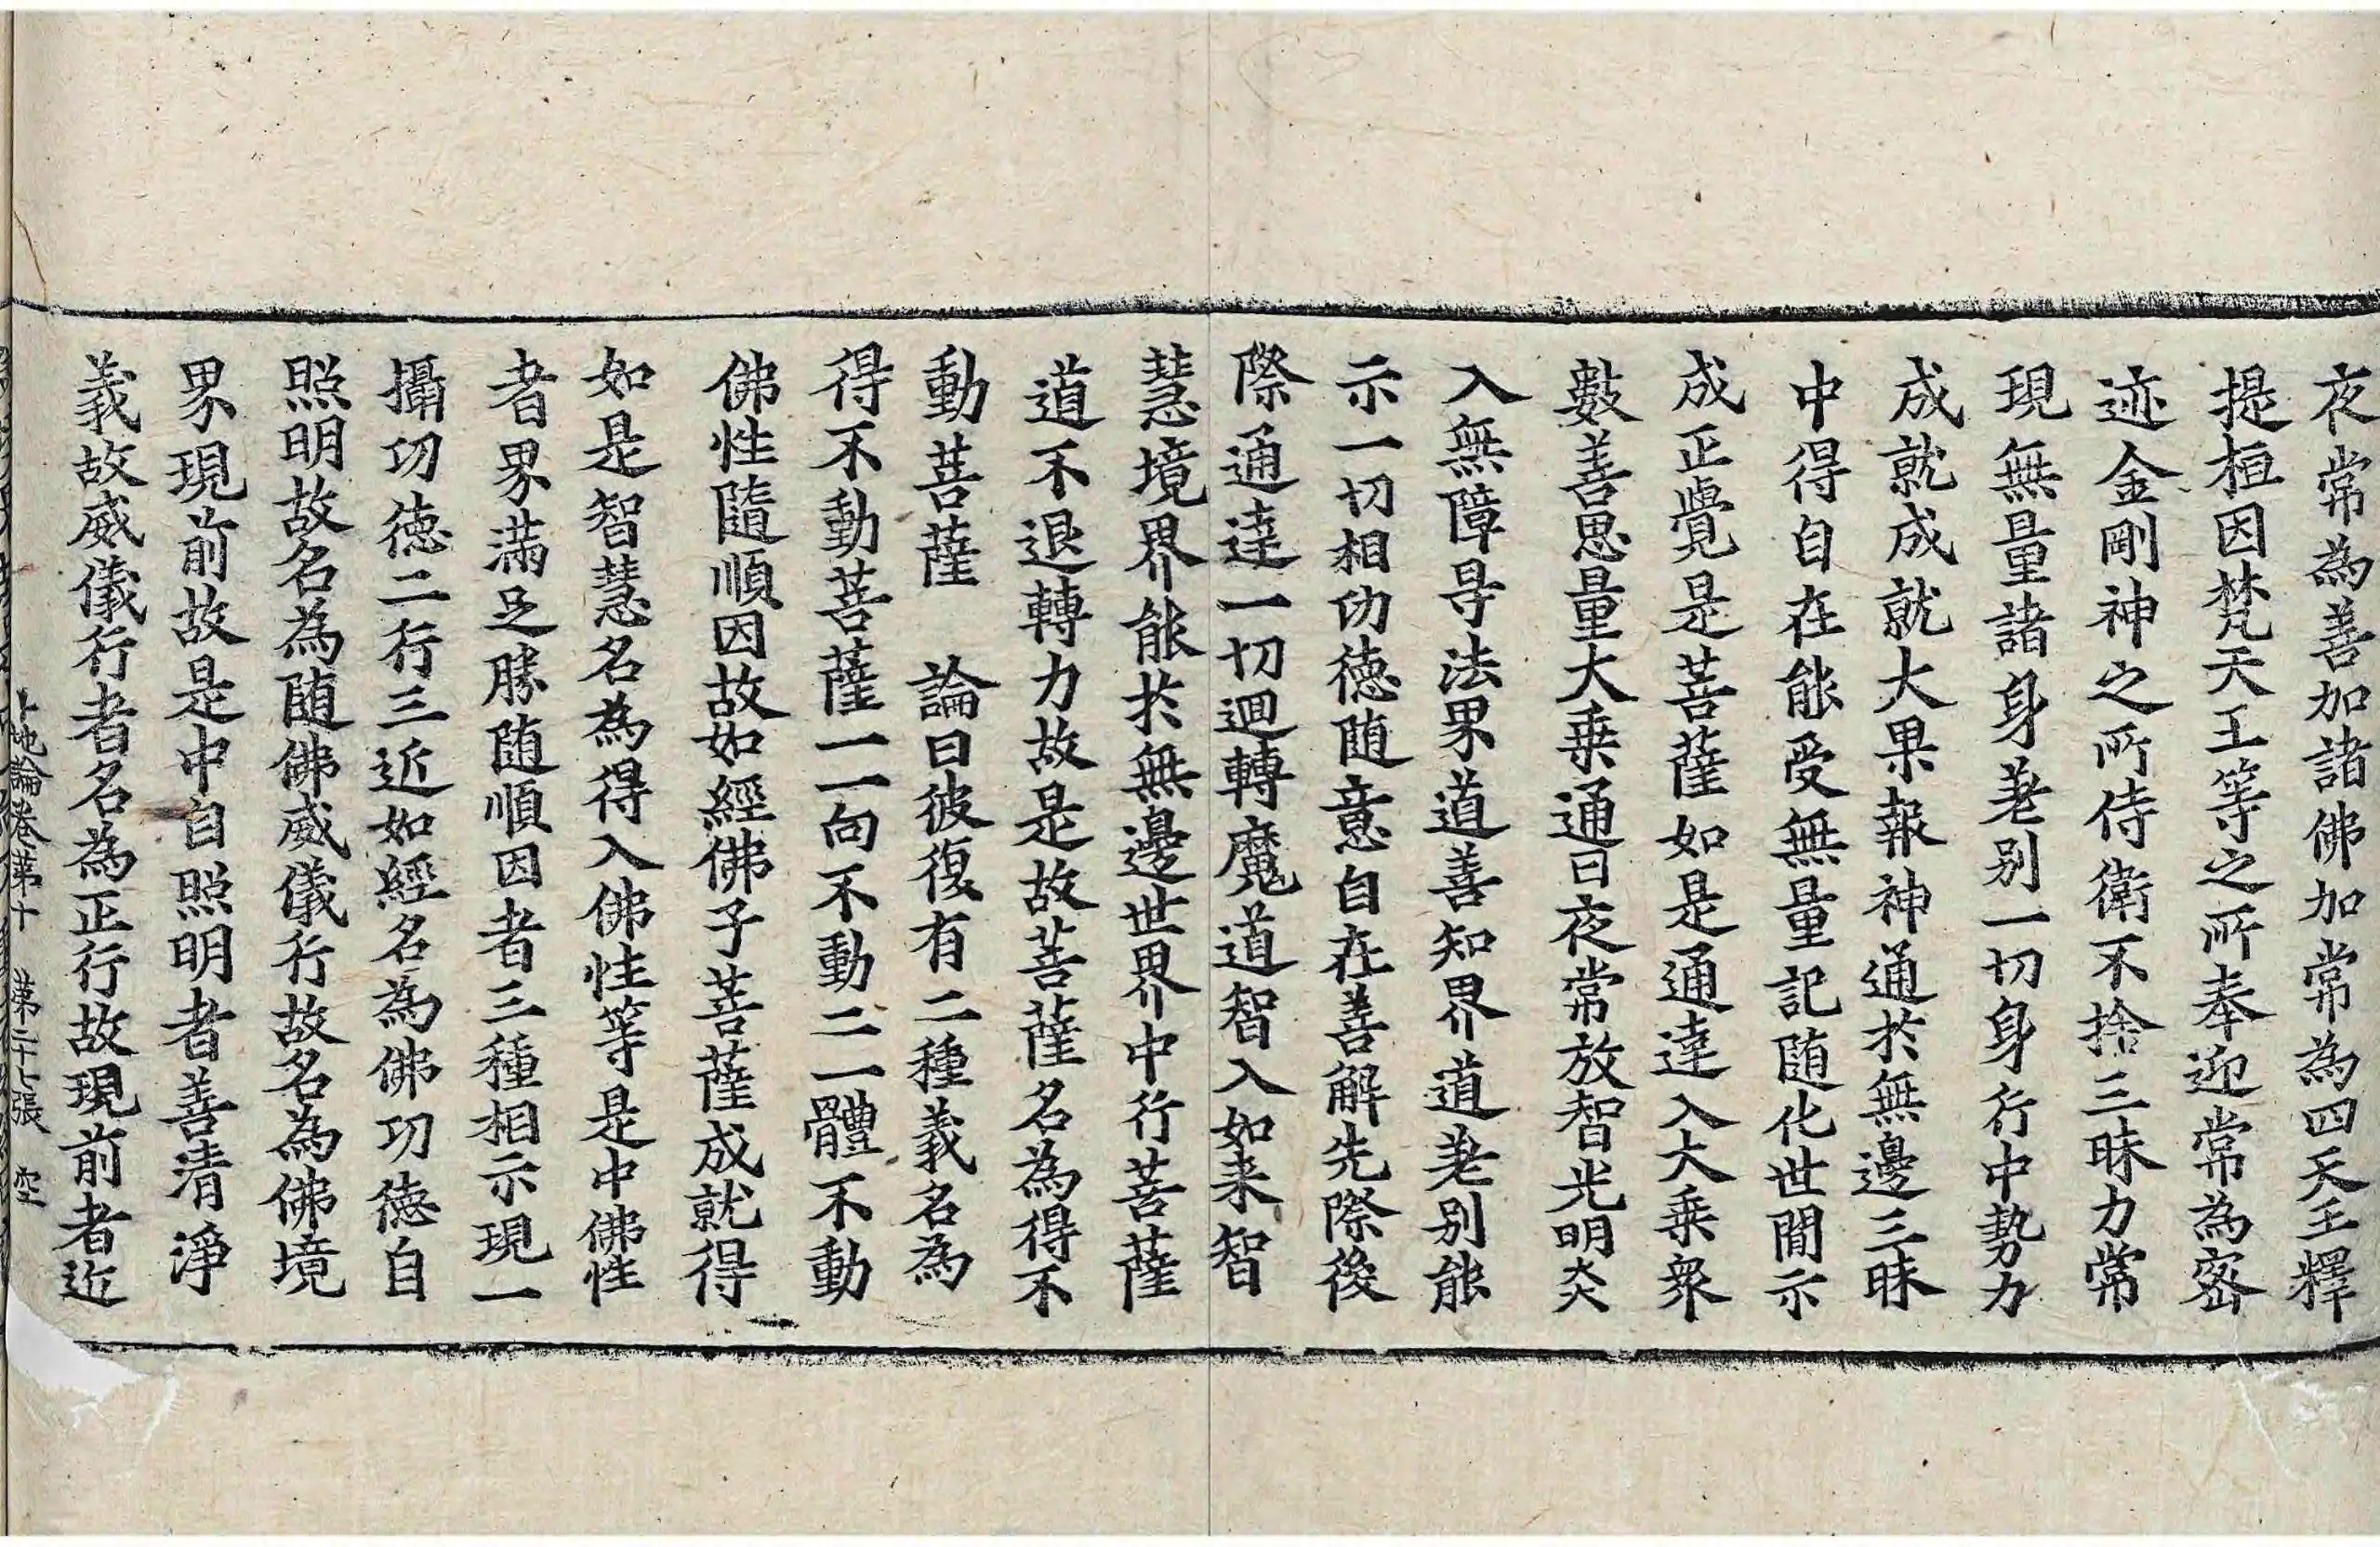 夜常為善加諸佛加常為四天王釋
提桓因梵天王等之所奉迎常為密
迹金剛神之所侍衛不捨三昧力常
現無量諸身差别一切身行中勢力
成就成就大果報神通於無邊三昧
中得自在能受無量記随化世間示
成正覺是菩薩如是通達入大乗衆
數善思量大乗通日夜常放智光明炎
入無障㝵法界道善知界道差别能
示一切相功德随意自在善解先際後
際通達一切迴轉魔道智入如来智
慧境界能於無邊世界中行菩薩
道不退轉力故是故菩薩名為得不
動菩薩　論曰彼復有二種義名為
得不動菩薩一一向不動二一體不動
佛性隨順因故如經佛子菩薩成就得
如是智慧名為得入佛性等是中佛性
者界滿足勝随順因者三種相示現一
攝功德二行三近如經名為佛功德自
照明故名為随佛威儀行故名為佛境
界現前故是中自照明者善清淨
義故威儀行者名為正行故現前者近
十地論卷第十　第二十七張　空